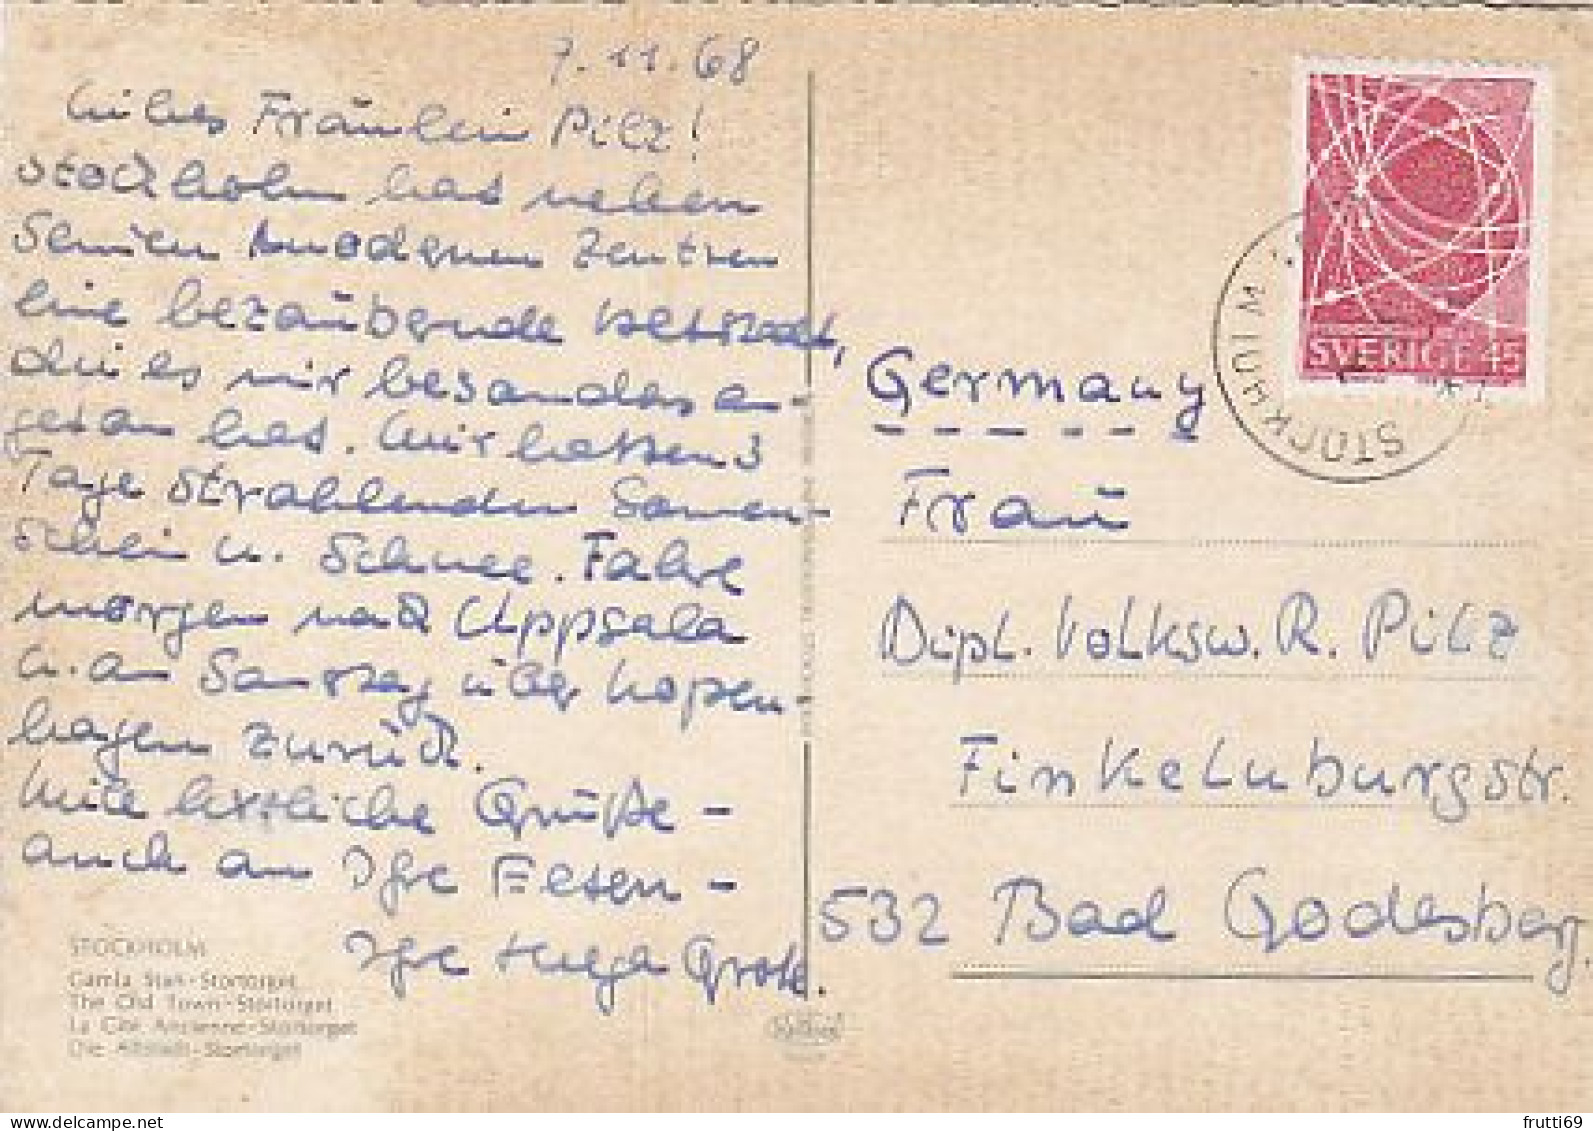 7.11.68
Liebes Fräulein Pilz!
Stockholm hat neben
seinen modernen Zentren
eine bezaubernde Altstadt,
die es mir besonders an-
getan hat. Wir hatten 3
Tage strahlenden Sonnen-
schein u. Schnee. Fahre
morgen nach Uppsala
u. am Samstag über Kopen-
hagen zurück.
Mit herzliche Grüße -
auch an Ihre Eltern -
Ihre Helga Groth.
STOCKHOLM
Gamla Stan-Stortorget
The Old Town-Stortorget
La Cité Ancienne-Stortorget
Die Altstadt-Stortorget
SVERIGE 45
STOCKHOLM
Germany
Frau
Dipl. Volksw. R. Pilz
Finkelnburgstr.
532 Bad Godesberg.
frutti69